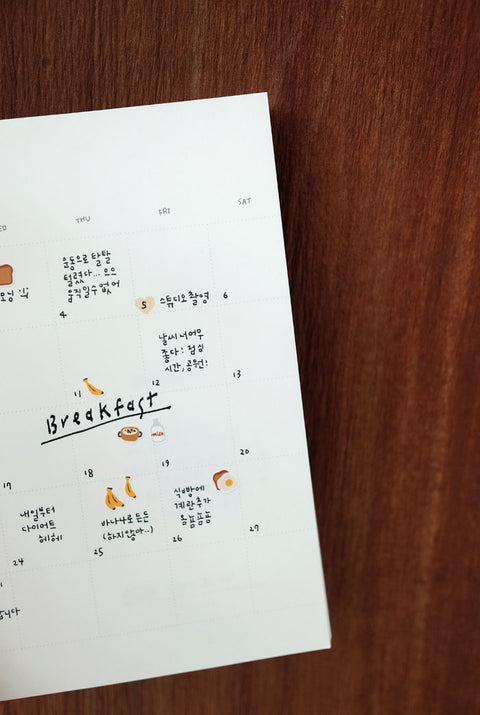 ED
THU
FRI
SAT
운동으로 탈탈
털렸다... 으으
움직일수 없어
모닝
4
5 스튜디오 촬영
6
날씨 너어무
좋다! 점심
시간, 공원!
11
12
13
Breakfast
milk
17
18
19
20
내일부터
다이어트
헤헤
바나나로 든든
(하지않아..)
식빵에
계란추가
24
25
26
27
니다